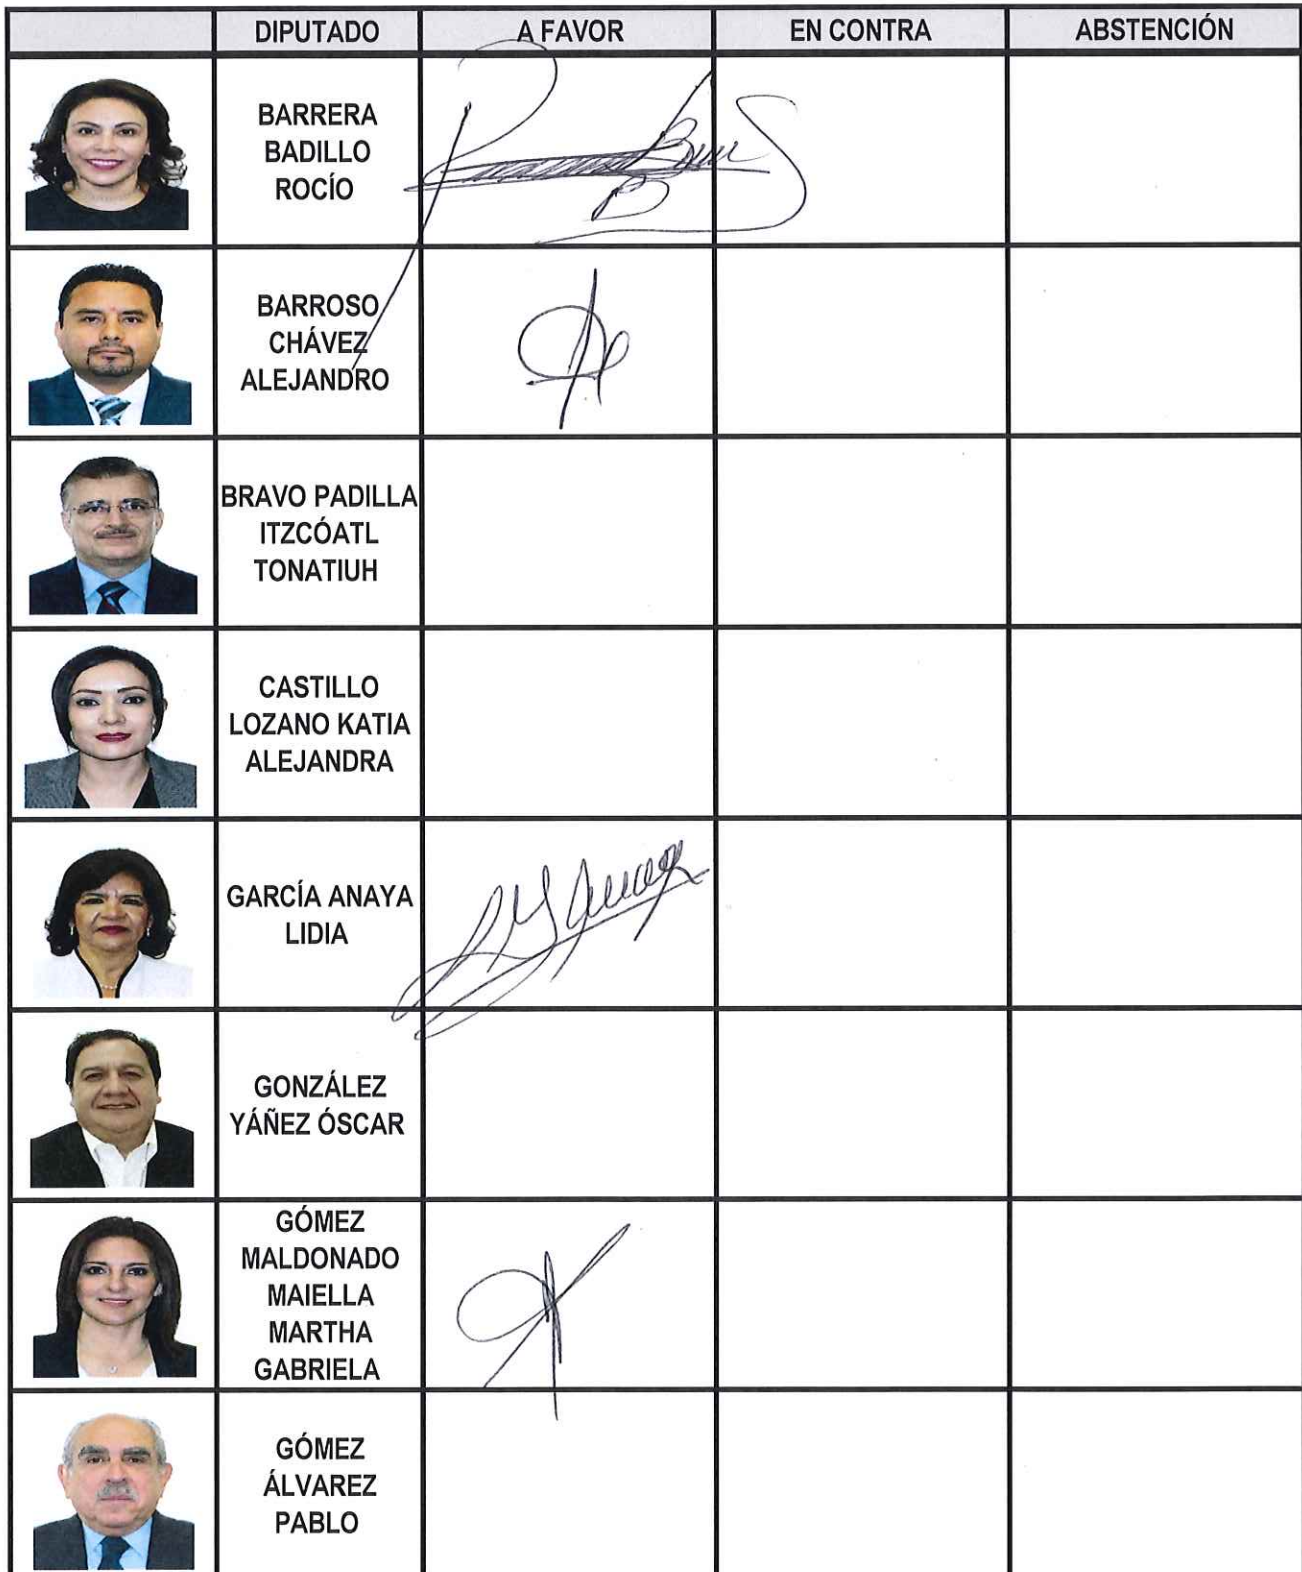 DIPUTADO A FAVOR EN CONTRA ABSTENCIÓN
BARRERA
BADILLO
ROCÍO
BARROSO
CHÁVEZ
ALEJANDRO
BRAVO PADILLA
ITZCÓATL
TONATIUH
CASTILLO
LOZANO KATIA
ALEJANDRA
GARCÍA ANAYA
LIDIA
GONZÁLEZ
YÁÑEZ ÓSCAR
GÓMEZ
MALDONADO
MAIELLA
MARTHA
GABRIELA
GÓMEZ
ÁLVAREZ
PABLO